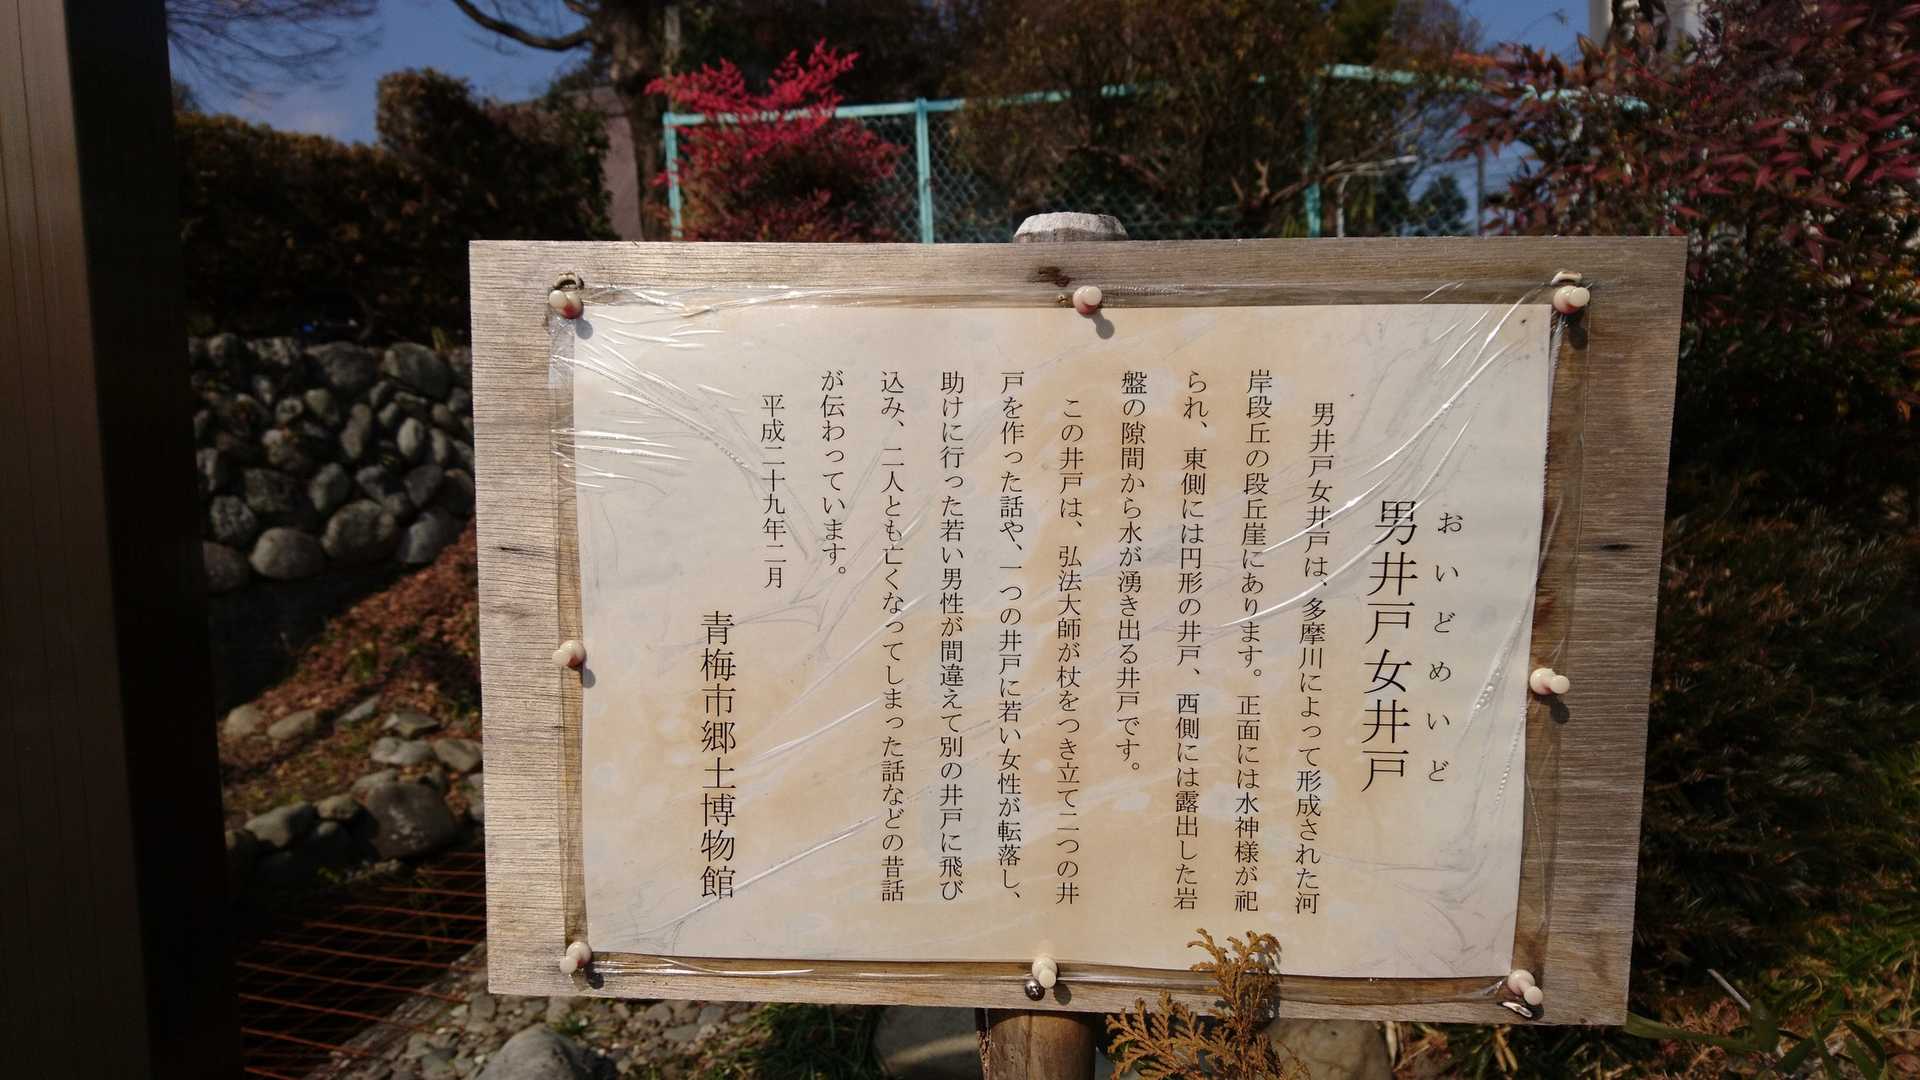 おいどめいど
男井戸女井戸
男井戸女井戸は、多摩川によって形成された河
岸段丘の段丘崖にあります。正面には水神様が祀
られ、東側には円形の井戸、西側には露出した岩
盤の隙間から水が湧き出る井戸です。
この井戸は、弘法大師が杖をつき立て二つの井
戸を作った話や、一つの井戸に若い女性が転落し、
助けに行った若い男性が間違えて別の井戸に飛び
込み、二人とも亡くなってしまった話などの昔話
が伝わっています。
平成二十九年二月
青梅市郷土博物館